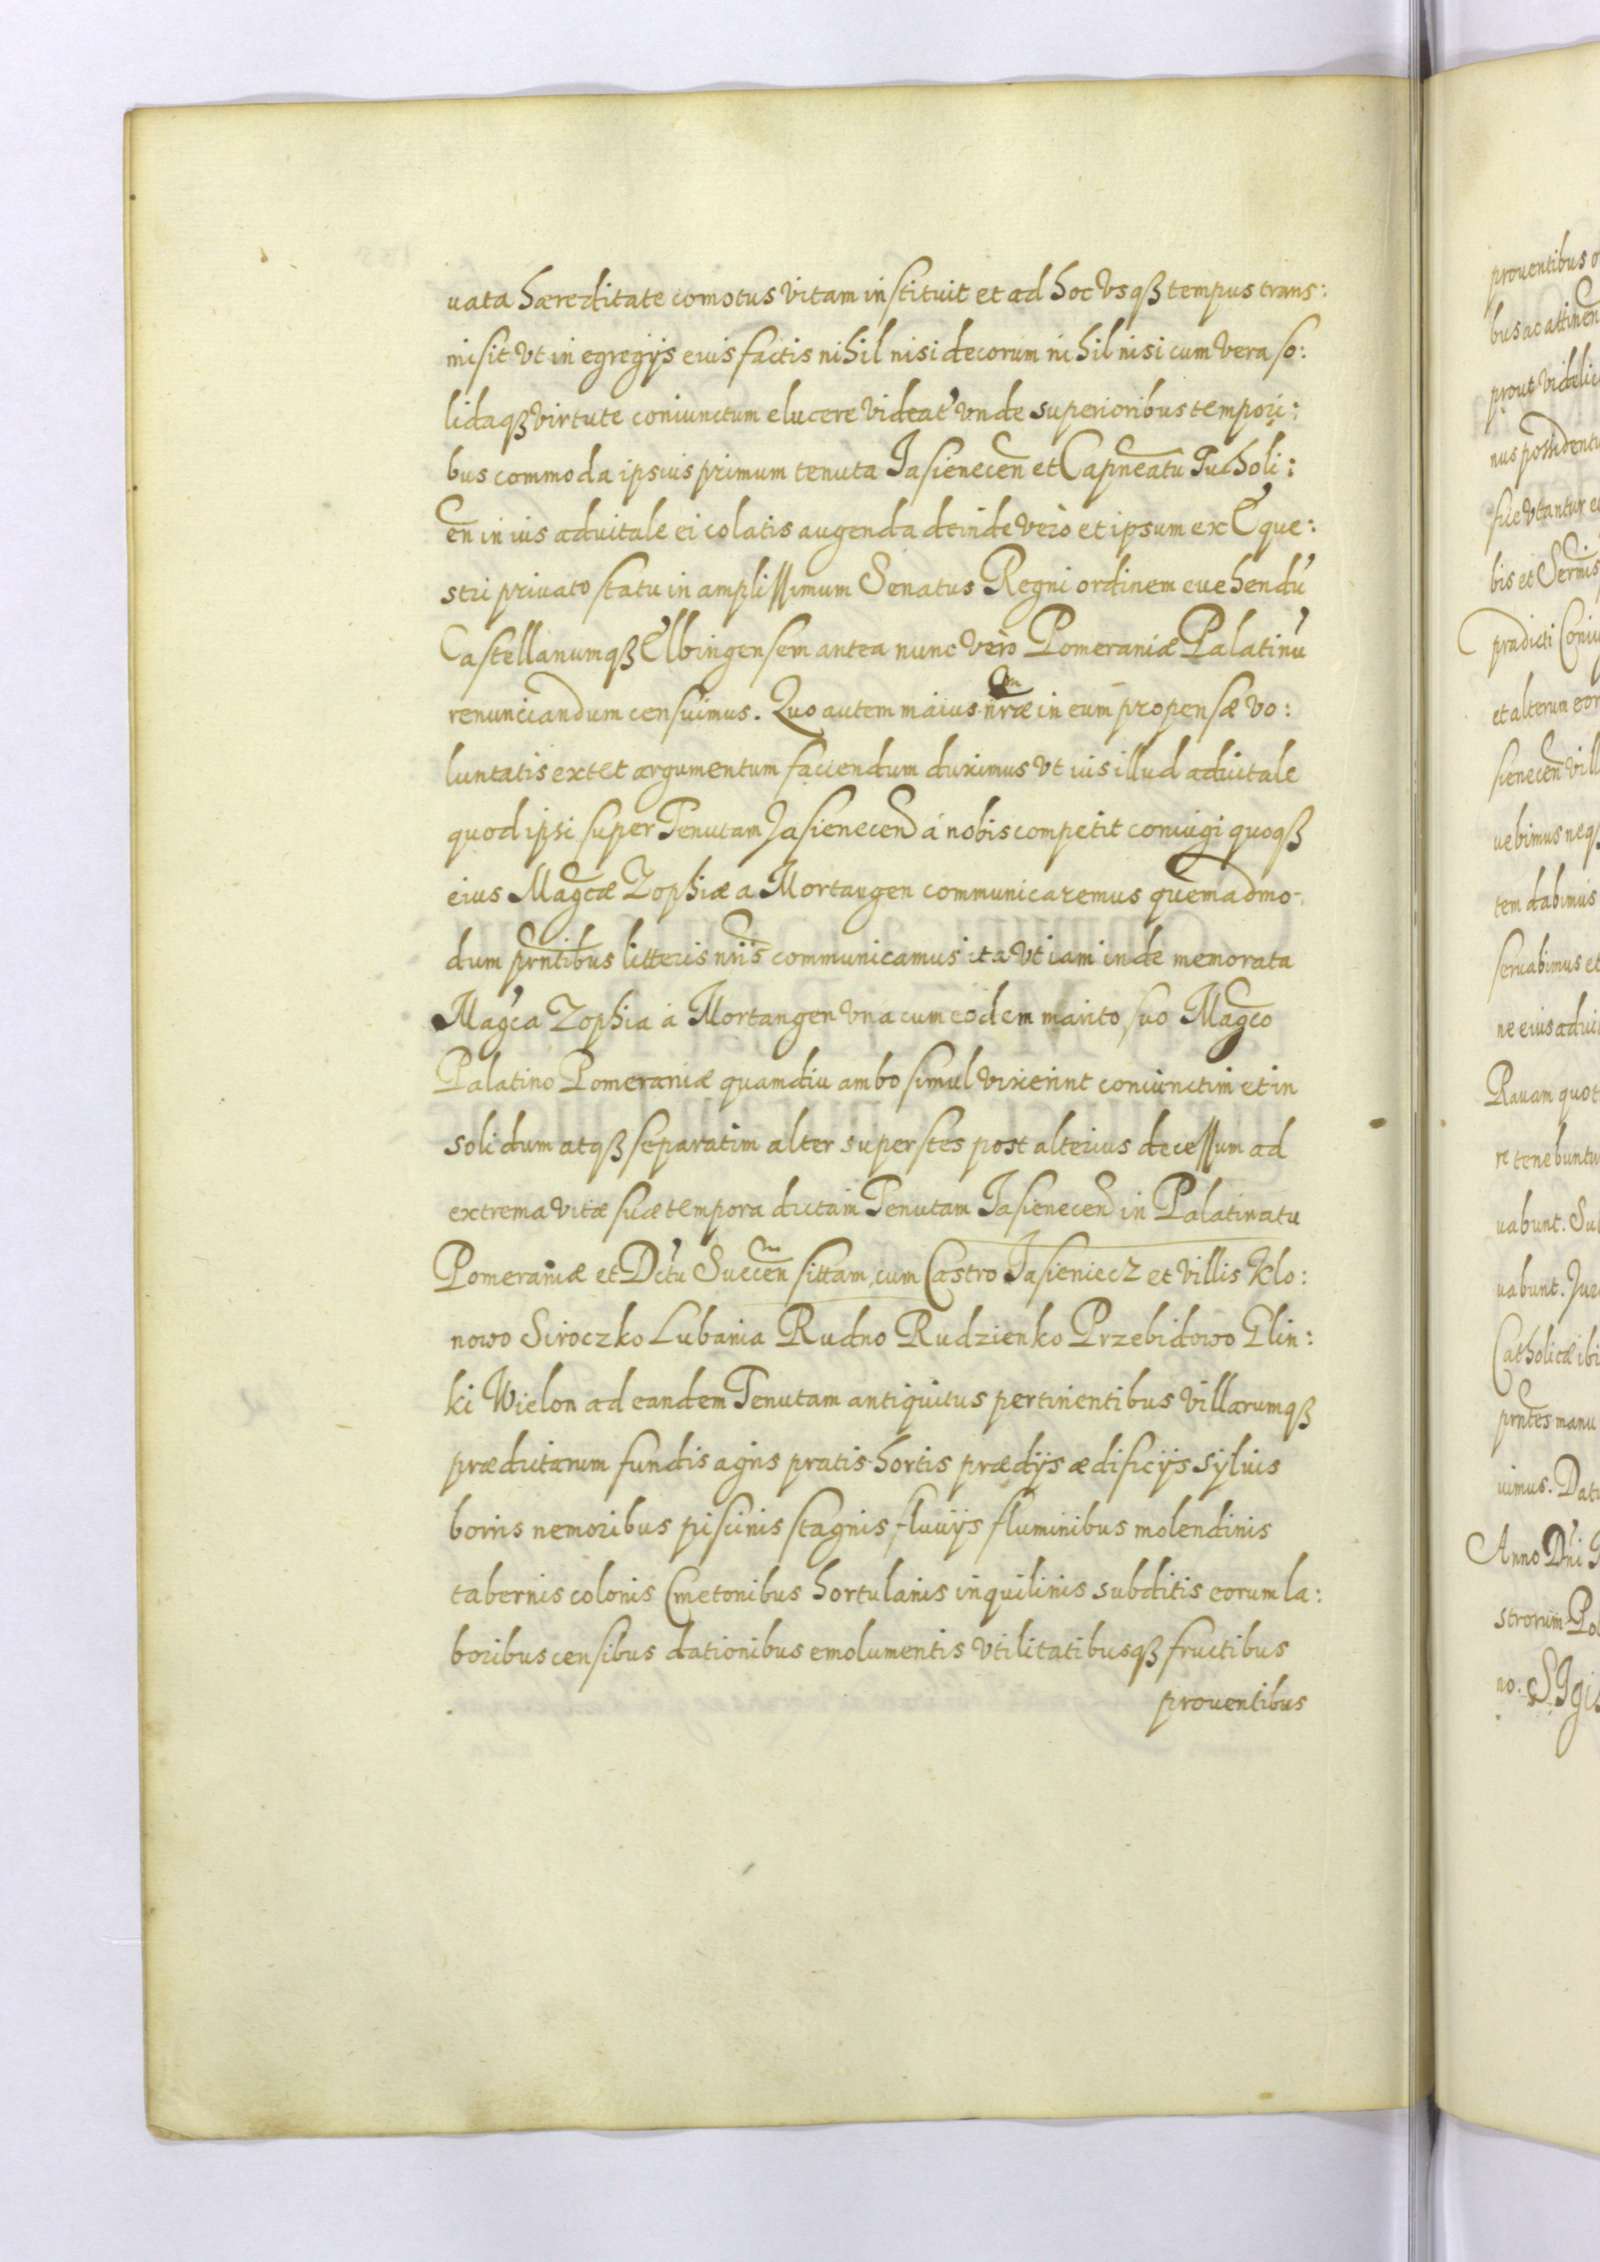 uata hæreditate comotus vitam instituit et ad hoc vsqß tempus trans:
misit vt in egregijs eius factis nihil nisi decorum nihil nisi cum vera so:
lidaqß virtute coniunctum elucere videat' vnde superioribus tempori:
bus commoda ipsius primum tenuta Jasienecen̄ et Capneatu Tucholi:
en̄ in ius aduitale ei colatis augenda deinde vero et ipsum ex Eque:
stri priuato statu in amplissimum Senatus Regni ordinem euehendū
Castellanumqß Elbingensem antea nunc vero Pomeraniæ Palatinū
renunciandum censuimus. Quo autem maius nr̄æ in eum propensæ vo:
luntatis extet argumentum faciendum duximus vt ius illud aduitale
quod ipsi super Tenutam Jasienecen̄ á nobis competit coniugi quoqß
eius Mag̃cæ Zophiæ a Mortangen communicaremus quemadmo-
dum prn̄tibus litteris nr̄is communicamus ita vt iam inde memorata
Mag̃ca Zophia á Mortangen vna cum eodem marito suo Mag̃co
Palatino Pomeraniæ quamdiu ambo simul vixerint coniunctim et in
solidum atqß separatim alter superstes post alterius decessum ad
extrema vitæ suæ tempora dictam Tenutam Jasienecen̄ in Palatinatu
Pomeraniæ et Dc̄tu Suecen̄ sittam, cum Castro Jasieniecz et villis Klo:
nowo Siroczko Lubania Rudno Rudzienko Przebidowo Glin:
ki Wielon ad eandem Tenutam antiquitus pertinentibus villarumqß
prædictarum fundis agris pratis hortis prædijs ædificijs syluis
borris nemoribus piscinis stagnis fluuijs fluminibus molendinis
tabernis colonis Cmetonibus hortulanis inquilinis subditis eorum la:
boribus censibus dationibus emolumentis vtilitatibusqß fructibus
prouentibus
prouentibus
bus ac attinen
prout videlic
nus possident
sue vtantur
bis et Serm̄is
prædicti Coniu
et alterum eor
sienecen̄ vill
uebimus neqß
tem dabimus
seruabimus et
ne eius adui
Rauam quot
re tenebuntu
uabunt. Su
uabunt. Jur
Catholicæ ibi
prn̄tes manu
uimus. Dat
Anno Dn̄i
strorum Pol
no. SIgis